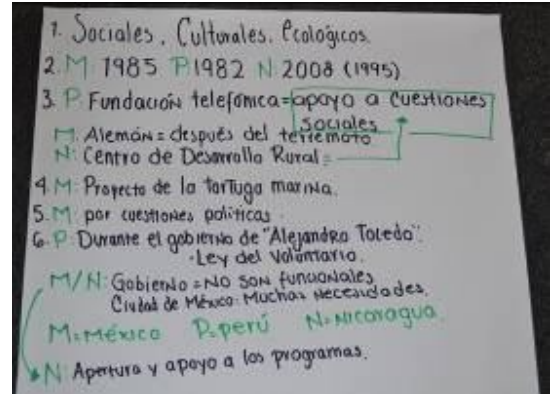 1. Sociales, Culturales, Ecológicos.
2. M: 1985 P: 1982 N: 2008 (1995)
3. P: Fundación telefónica = apoyo a cuestiones
sociales
M: Alemán = después del terremoto
N: Centro de Desarrollo Rural =
4. M: Proyecto de la tortuga marina.
5. M: por cuestiones políticas.
6. P: Durante el gobierno de "Alejandro Toledo".
·Ley del voluntario.
M/N: Gobierno = No son funcionales
Ciudad de México: Muchas necesidades.
M=México P=perú N=Nicaragua.
N: Apertura y apoyo a los programas.